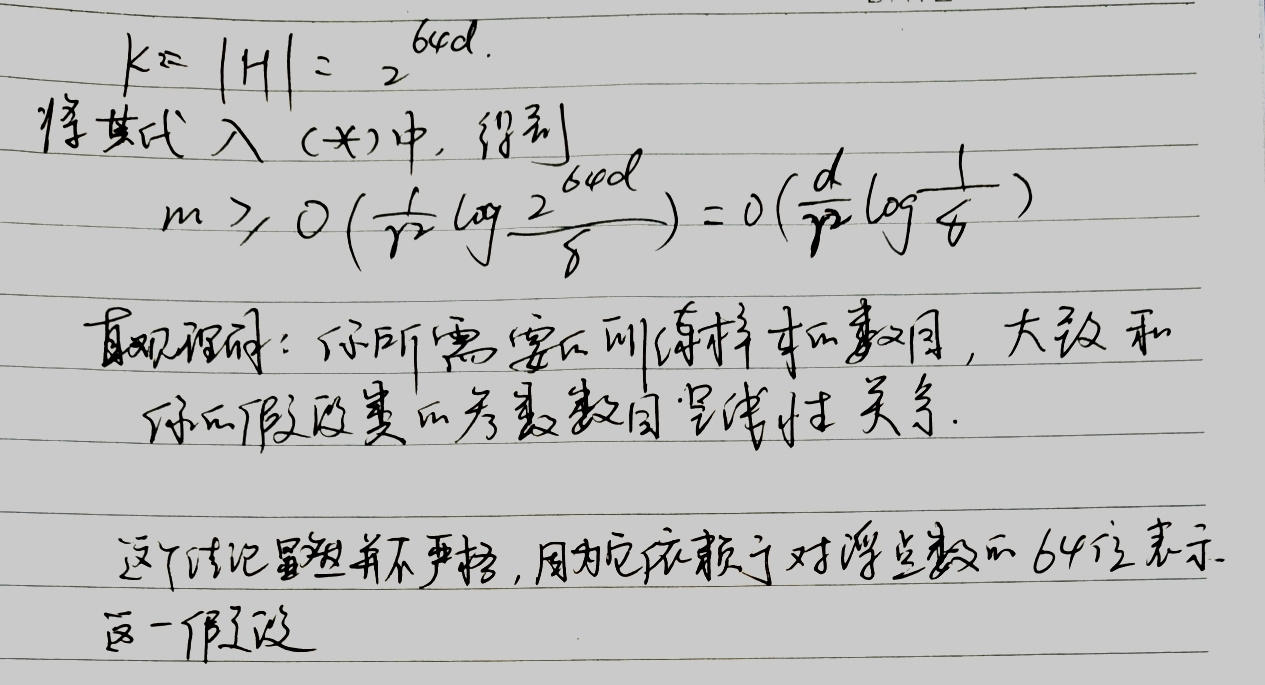 k = |H| = 2^{64d}.
将其代入 (*)中, 得到
m ≥ O(\frac{1}{γ^2} log \frac{2^{64d}}{δ}) = O(\frac{d}{γ^2} log \frac{1}{δ})
直观理解: 你所需要的训练样本的数目, 大致和
你的假设类的参数数目呈线性关系.
这个结论显然并不严格, 因为它依赖于对浮点数的64位表示
这一假设